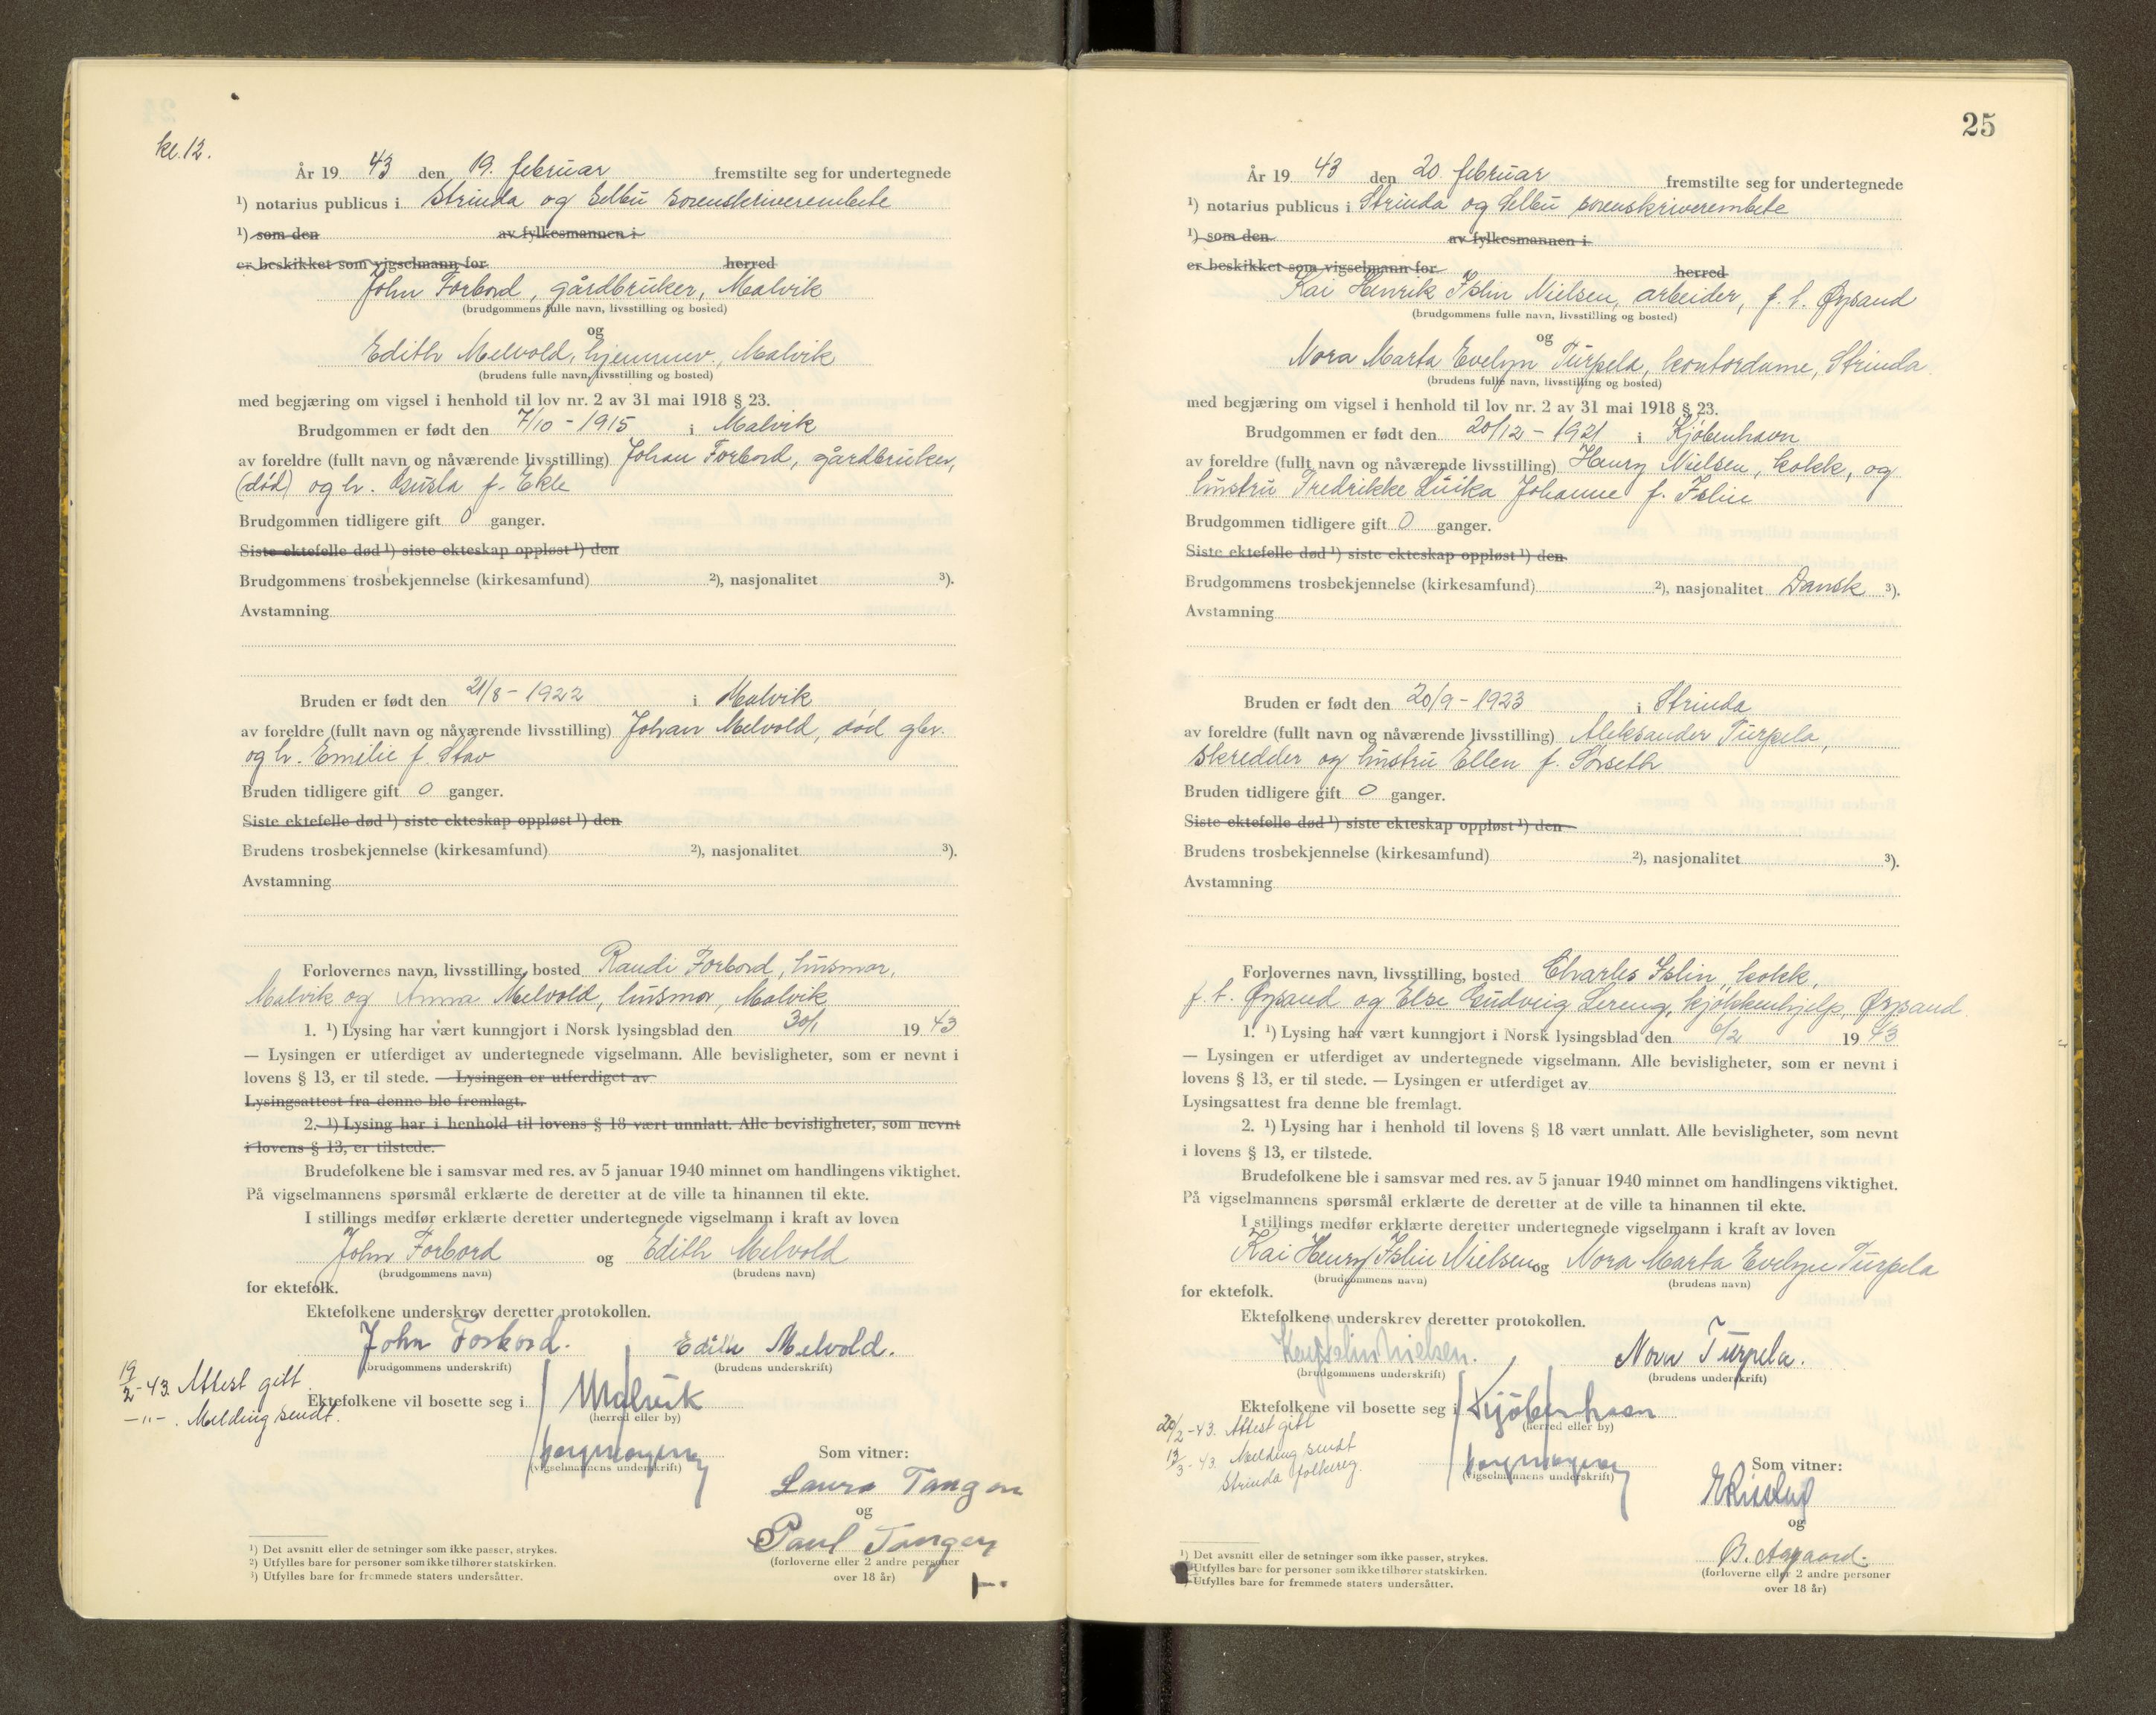 kl. 12.
År 19 43 den 19. februar fremstilte seg for undertegnede
¹) notarius publicus i Strinda og Selbu sorenskriverembete
¹) som den av fylkesmannen i
er beskikket som vigselmann for herred
John Forbord, gårdbruker, Malvik
(brudgommens fulle navn, livsstilling og bosted)
og
Edith Melvold, hjemmev., Malvik
(brudens fulle navn, livsstilling og bosted)
med begjæring om vigsel i henhold til lov nr. 2 av 31 mai 1918 § 23.
Brudgommen er født den 7/10 - 1915 i Malvik
av foreldre (fullt navn og nåværende livsstilling) Johan Forbord, gårdbruker,
(død) og h. Gusta f. Ekle
Brudgommen tidligere gift 0 ganger.
Siste ektefelle død ¹) siste ekteskap oppløst ¹) den
Brudgommens trosbekjennelse (kirkesamfund) ²), nasjonalitet ³).
Avstamning
Bruden er født den 21/8 - 1922 i Malvik
av foreldre (fullt navn og nåværende livsstilling) Johan Melvold, død gbr.
og h. Emilie f. Stav
Bruden tidligere gift 0 ganger.
Siste ektefelle død ¹) siste ekteskap oppløst ¹) den
Brudens trosbekjennelse (kirkesamfund) ²), nasjonalitet ³).
Avstamning
Forlovernes navn, livsstilling, bosted Randi Forbord, husmor,
Malvik og Anna Melvold, husmor, Malvik
1. ¹) Lysing har vært kunngjort i Norsk lysingsblad den 30/1 19 43
— Lysingen er utferdiget av undertegnede vigselmann. Alle bevisligheter, som er nevnt i
lovens § 13, er til stede. — Lysingen er utferdiget av
Lysingsattest fra denne ble fremlagt.
2. ¹) Lysing har i henhold til lovens § 18 vært unnlatt. Alle bevisligheter, som nevnt
i lovens § 13, er tilstede.
Brudefolkene ble i samsvar med res. av 5 januar 1940 minnet om handlingens viktighet.
På vigselmannens spørsmål erklærte de deretter at de ville ta hinannen til ekte.
I stillings medfør erklærte deretter undertegnede vigselmann i kraft av loven
John Forbord og Edith Melvold
(brudgommens navn) (brudens navn)
for ektefolk.
Ektefolkene underskrev deretter protokollen.
John Forbord. Edith Melvold.
(brudgommens underskrift) (brudens underskrift)
19/2 - 43. Attest gitt.
Ektefolkene vil bosette seg i Malvik
-"- . Melding sendt.
(herred eller by)
(vigselmannens underskrift)
Som vitner:
Laura Tangen
og
Paul Tangen
(forloverne eller 2 andre personer
over 18 år)
¹) Det avsnitt eller de setninger som ikke passer, strykes.
²) Utfylles bare for personer som ikke tilhører statskirken.
³) Utfylles bare for fremmede staters undersåtter.
25
År 19 43 den 20. februar fremstilte seg for undertegnede
¹) notarius publicus i Strinda og Selbu sorenskriverembete
¹) som den av fylkesmannen i
er beskikket som vigselmann for herred
Kai Henrik Islin Nielsen, arbeider, f. t. Øysand
(brudgommens fulle navn, livsstilling og bosted)
og
Nora Marta Evelyn Turpela, kontordame, Strinda
(brudens fulle navn, livsstilling og bosted)
med begjæring om vigsel i henhold til lov nr. 2 av 31 mai 1918 § 23.
Brudgommen er født den 20/12 - 1921 i Kjøbenhavn
av foreldre (fullt navn og nåværende livsstilling) Henry Nielsen, kokk, og
hustru Fredrikke Luika Johanne f. Islin
Brudgommen tidligere gift 0 ganger.
Siste ektefelle død ¹) siste ekteskap oppløst ¹) den
Brudgommens trosbekjennelse (kirkesamfund) ²), nasjonalitet Dansk ³).
Avstamning
Bruden er født den 20/9 - 1923 i Strinda
av foreldre (fullt navn og nåværende livsstilling) Aleksander Turpela,
skredder og hustru Ellen f. Sørseth
Bruden tidligere gift 0 ganger.
Siste ektefelle død ¹) siste ekteskap oppløst ¹) den
Brudens trosbekjennelse (kirkesamfund) ²), nasjonalitet ³).
Avstamning
Forlovernes navn, livsstilling, bosted Charles Islin, kokk,
f. t. Øysand og Else Gudveig Lereng, kjøkkenhjelp, Øysand
1. ¹) Lysing har vært kunngjort i Norsk lysingsblad den 6/2 19 43
— Lysingen er utferdiget av undertegnede vigselmann. Alle bevisligheter, som er nevnt i
lovens § 13, er til stede. — Lysingen er utferdiget av
Lysingsattest fra denne ble fremlagt.
2. ¹) Lysing har i henhold til lovens § 18 vært unnlatt. Alle bevisligheter, som nevnt
i lovens § 13, er tilstede.
Brudefolkene ble i samsvar med res. av 5 januar 1940 minnet om handlingens viktighet.
På vigselmannens spørsmål erklærte de deretter at de ville ta hinannen til ekte.
I stillings medfør erklærte deretter undertegnede vigselmann i kraft av loven
Kai Henry Islin Nielsen og Nora Marta Evelyn Turpela
(brudgommens navn) (brudens navn)
for ektefolk.
Ektefolkene underskrev deretter protokollen.
Kay Islin Nielsen. Nora Turpela.
(brudgommens underskrift) (brudens underskrift)
Ektefolkene vil bosette seg i Kjøbenhavn
(herred eller by)
20/2 - 43. Attest gitt
13/3 - 43. Melding sendt
Strinda folkereg.
(vigselmannens underskrift)
Som vitner:
og
B. Aagaard.
(forloverne eller 2 andre personer
over 18 år)
¹) Det avsnitt eller de setninger som ikke passer, strykes.
Utfylles bare for personer som ikke tilhører statskirken.
Utfylles bare for fremmede staters undersåtter.